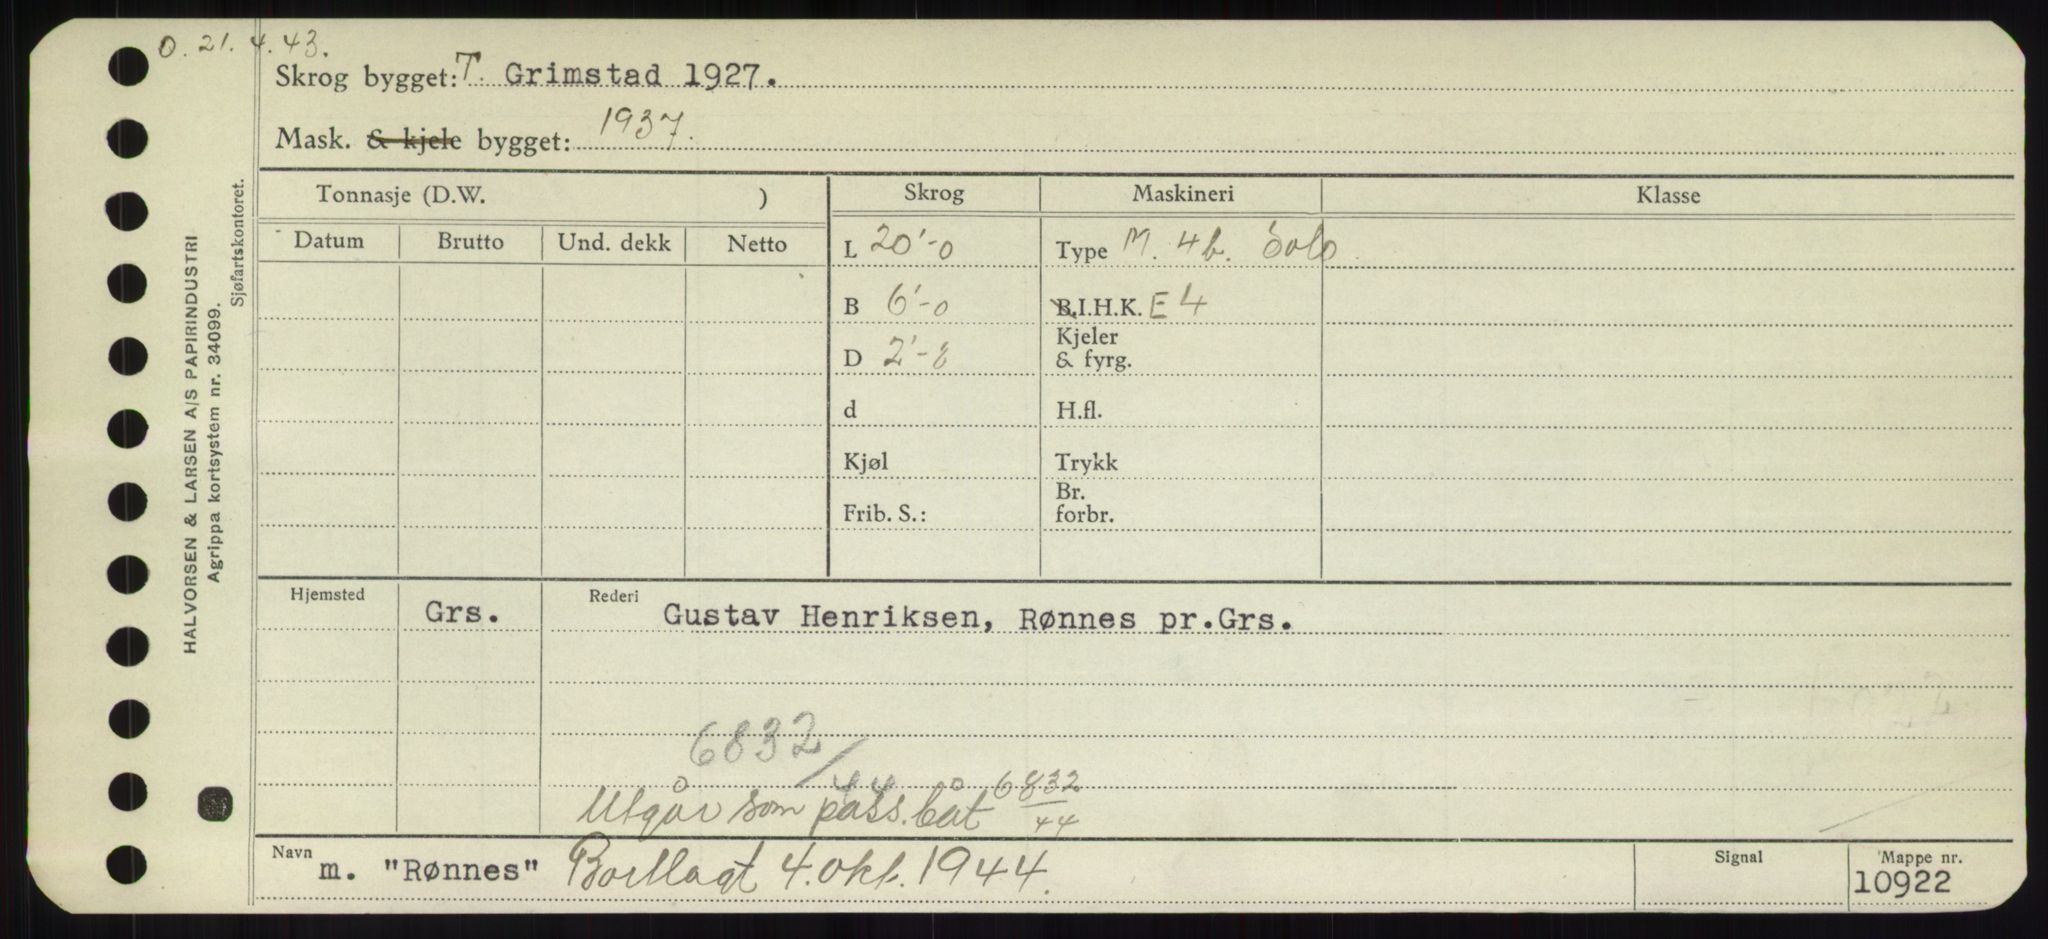 O. 21. 4. 43.
Skrog bygget: T. Grimstad 1927.
Mask. & kjele bygget: 1937.
Tonnasje (D.W. )
Skrog
Maskineri
Klasse
Datum
Brutto
Und. dekk
Netto
L 20'-0
B 6'-0
D 2'-8
d
Kjøl
Frib. S.:
Type M. 4b. Solo
B.I.H.K. E 4
Kjeler
& fyrg.
H.fl.
Trykk
Br.
forbr.
Hjemsted
Grs.
Rederi
Gustav Henriksen, Rønnes pr.Grs.
6832/44
Utgår som pass. båt 6832/44
Navn
m. "Rønnes" Bortlagt 4. okt. 1944.
Signal
Mappe nr.
10922
HALVORSEN & LARSEN A/S PAPIRINDUSTRI
Agrippa kortsystem nr. 34099.
Sjøfartskontoret.